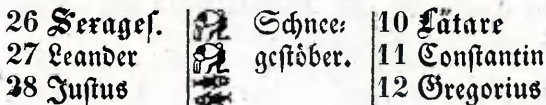 26 Sexages. Schnee= 10 Lätare
27 Leander gestöber. 11 Constantin
28 Justus 12 Gregorius